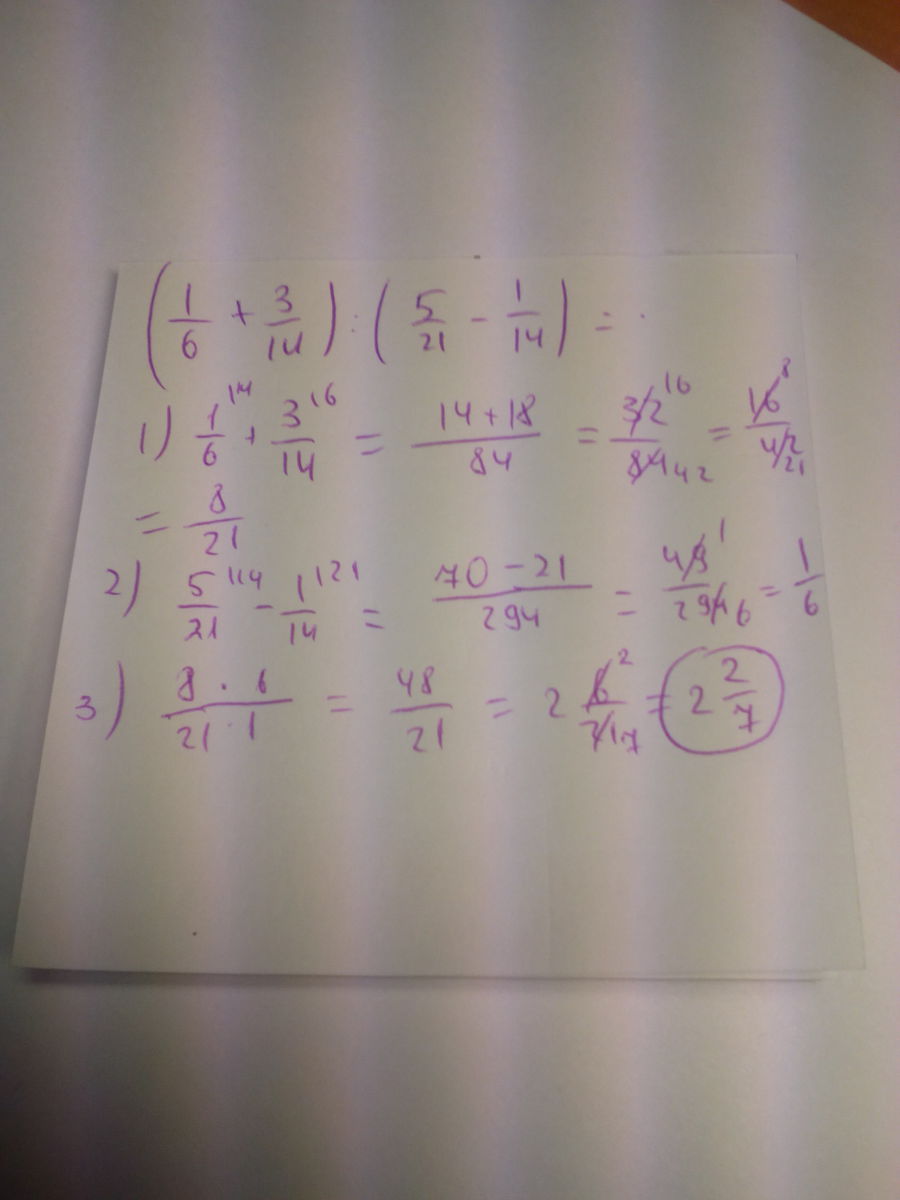 (1/6 + 3/14) : (5/21 - 1/14) =
1) 1/6 |14 + 3/14 |6 = 14+18/84 = 32/84 16 42 = 16/42 8 21
= 8/21
2) 5/21 |14 - 1/14 |21 = 70-21/294 = 49/294 1 6 = 1/6
3) 8 · 6/21 · 1 = 48/21 = 2 6/21 2 7 = 2 2/7